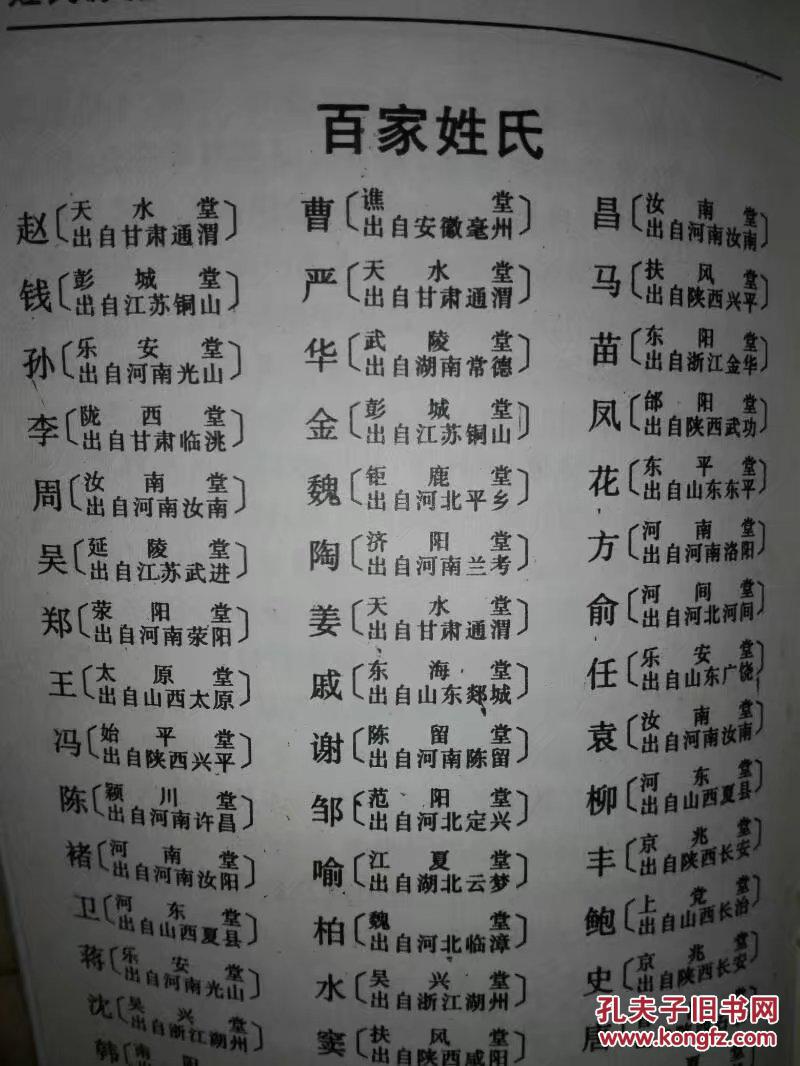 百家姓氏
赵 天水堂
出自甘肃通渭
钱 彭城堂
出自江苏铜山
孙 乐安堂
出自河南光山
李 陇西堂
出自甘肃临洮
周 汝南堂
出自河南汝南
吴 延陵堂
出自江苏武进
郑 荥阳堂
出自河南荥阳
王 太原堂
出自山西太原
冯 始平堂
出自陕西兴平
陈 颖川堂
出自河南许昌
褚 河南堂
出自河南汝阳
卫 河东堂
出自山西夏县
蒋 乐安堂
出自河南光山
沈 吴兴堂
出自浙江湖州
韩 南阳
曹 谯堂
出自安徽亳州
严 天水堂
出自甘肃通渭
华 武陵堂
出自湖南常德
金 彭城堂
出自江苏铜山
魏 钜鹿堂
出自河北平乡
陶 济阳堂
出自河南兰考
姜 天水堂
出自甘肃通渭
戚 东海堂
出自山东郯城
谢 陈留堂
出自河南陈留
邹 范阳堂
出自河北定兴
喻 江夏堂
出自湖北云梦
柏 魏堂
出自河北临漳
水 吴兴堂
出自浙江湖州
窦 扶风堂
出自陕西咸阳
昌 汝南堂
出自河南汝南
马 扶风堂
出自陕西兴平
苗 东阳堂
出自浙江金华
凤 邰阳堂
出自陕西武功
花 东平堂
出自山东东平
方 河南堂
出自河南洛阳
俞 河间堂
出自河北河间
任 乐安堂
出自山东广饶
袁 汝南堂
出自河南汝南
柳 河东堂
出自山西夏县
丰 京兆堂
出自陕西长安
鲍 上党堂
出自山西长治
史 京兆堂
出自陕西长安
唐
孔夫子旧书网
www.kongfz.com